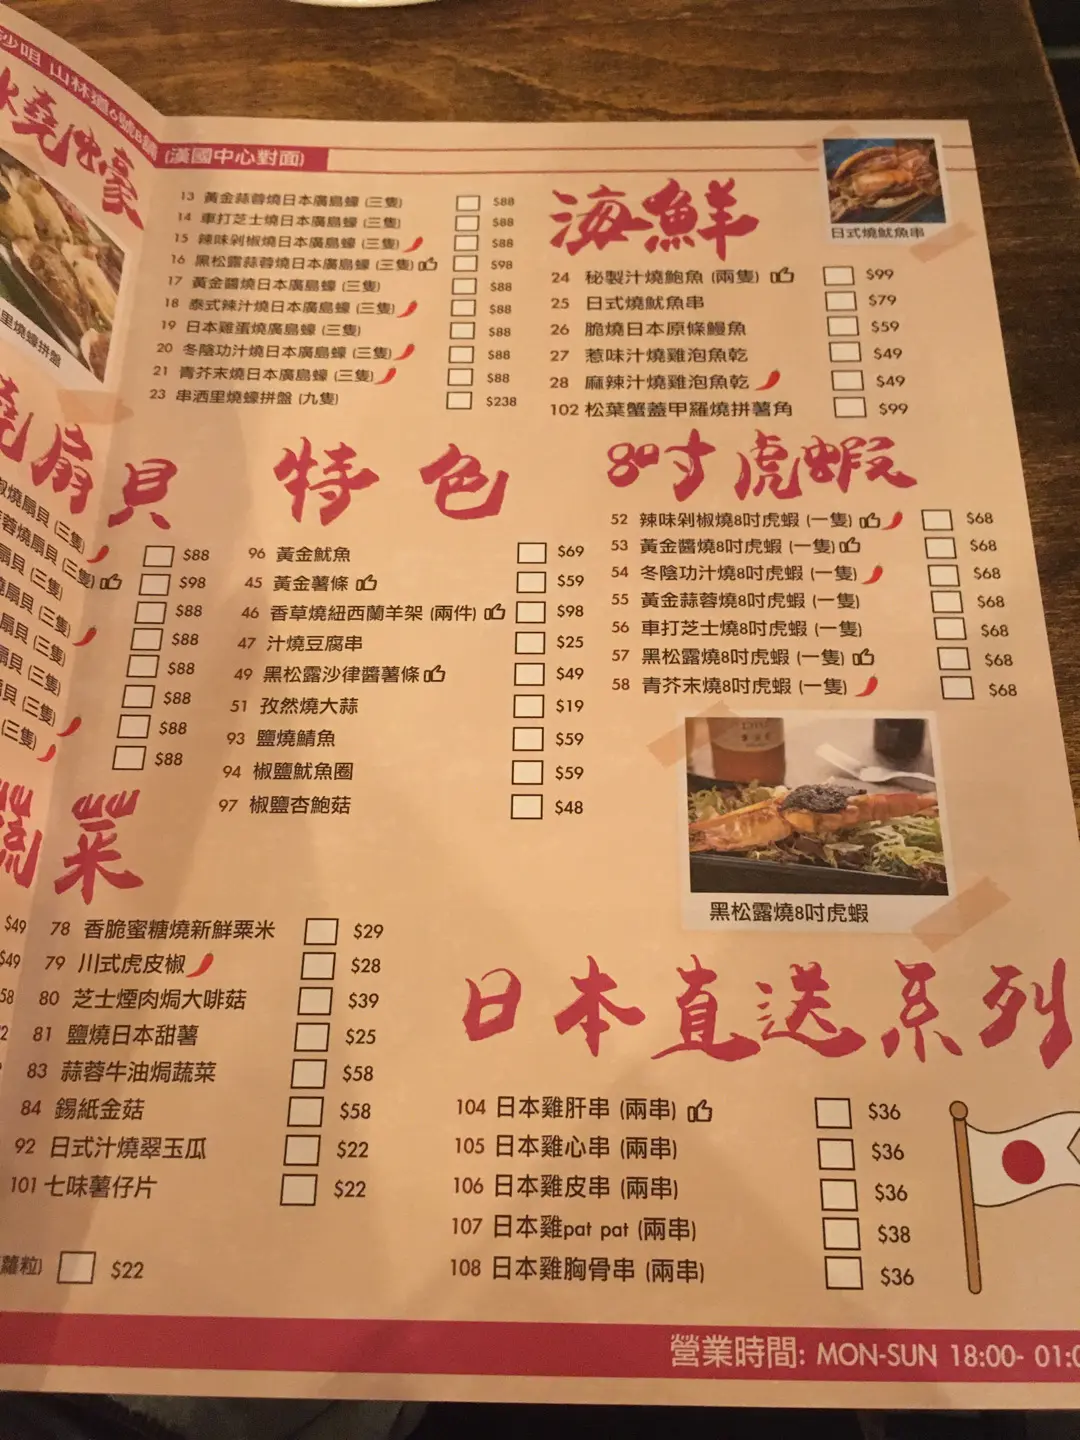 沙咀 山林道6號8舖 (漢國中心對面)
火燒生蠔
里燒蠔拼盤
13 黃金蒜蓉燒日本廣島蠔 (三隻) $88
14 車打芝士燒日本廣島蠔 (三隻) $88
15 辣味剁椒燒日本廣島蠔 (三隻) $88
16 黑松露蒜蓉燒日本廣島蠔 (三隻) $98
17 黃金醬燒日本廣島蠔 (三隻) $88
18 泰式辣汁燒日本廣島蠔 (三隻) $88
19 日本雞蛋燒廣島蠔 (三隻) $88
20 冬陰功汁燒日本廣島蠔 (三隻) $88
21 青芥末燒日本廣島蠔 (三隻) $88
23 串洒里燒蠔拼盤 (九隻) $238
海鮮
日式燒魷魚串
24 秘製汁燒鮑魚 (兩隻) $99
25 日式燒魷魚串 $79
26 脆燒日本原條鰻魚 $59
27 惹味汁燒雞泡魚乾 $49
28 麻辣汁燒雞泡魚乾 $49
102 松葉蟹蓋甲羅燒拼薯角 $99
燒扇貝
椒燒扇貝 (三隻) $88
蓉燒扇貝 (三隻) $98
扇貝 (三隻) $88
燒扇貝 (三隻) $88
扇貝 (三隻) $88
扇貝 (三隻) $88
貝 (三隻) $88
(三隻) $88
特色
96 黃金魷魚 $69
45 黃金薯條 $59
46 香草燒紐西蘭羊架 (兩件) $98
47 汁燒豆腐串 $25
49 黑松露沙律醬薯條 $49
51 孜然燒大蒜 $19
93 鹽燒鯖魚 $59
94 椒鹽魷魚圈 $59
97 椒鹽杏鮑菇 $48
8吋虎蝦
52 辣味剁椒燒8吋虎蝦 (一隻) $68
53 黃金醬燒8吋虎蝦 (一隻) $68
54 冬陰功汁燒8吋虎蝦 (一隻) $68
55 黃金蒜蓉燒8吋虎蝦 (一隻) $68
56 車打芝士燒8吋虎蝦 (一隻) $68
57 黑松露燒8吋虎蝦 (一隻) $68
58 青芥末燒8吋虎蝦 (一隻) $68
黑松露燒8吋虎蝦
蔬菜
$49 78 香脆蜜糖燒新鮮粟米 $29
$49 79 川式虎皮椒 $28
58 80 芝士煙肉焗大啡菇 $39
2 81 鹽燒日本甜薯 $25
83 蒜蓉牛油焗蔬菜 $58
84 錫紙金菇 $58
92 日式汁燒翠玉瓜 $22
101 七味薯仔片 $22
蘿粒) $22
日本直送系列
104 日本雞肝串 (兩串) $36
105 日本雞心串 (兩串) $36
106 日本雞皮串 (兩串) $36
107 日本雞pat pat (兩串) $38
108 日本雞胸骨串 (兩串) $36
營業時間: MON-SUN 18:00- 01:0